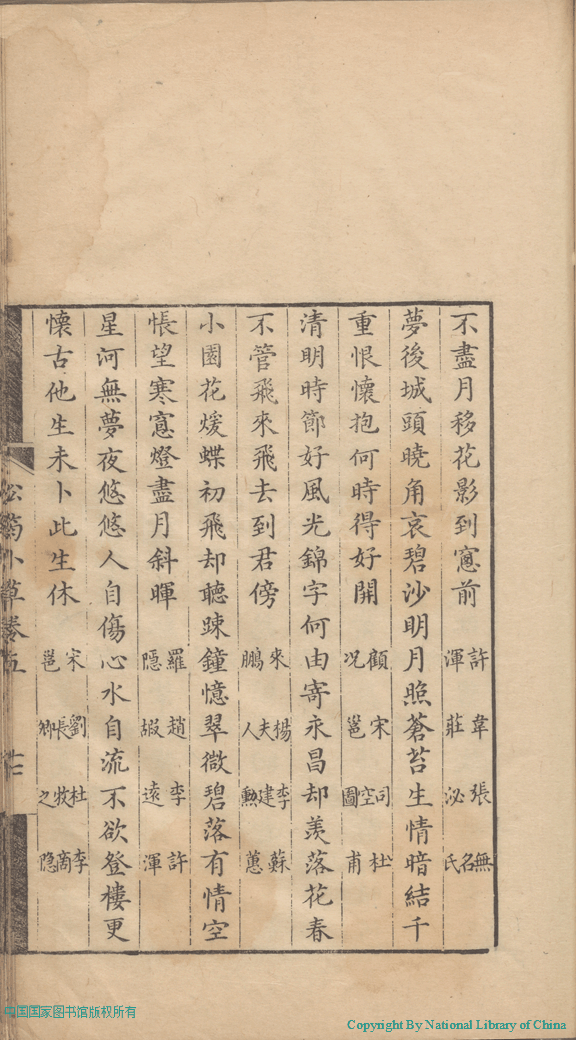 不盡月移花影到窻前　許渾　韋莊　張泌　無名氏
夢後城頭曉角哀碧沙明月照蒼苔生情暗結千
重恨懷抱何時得好開　顧况　宋邕　司空圖　杜甫
清明時節好風光錦字何由寄永昌却羨落花春
不管飛來飛去到君傍　來鵬　楊夫人　李建勲　蘇蕙
小園花煖蝶初飛却聽踈鐘憶翠微碧落有情空
悵望寒窻燈盡月斜暉　羅隱　趙嘏　李遠　許渾
星河無夢夜悠悠人自傷心水自流不欲登樓更
懷古他生未卜此生休　宋邕　劉長卿　杜牧之　李商隐
松菊小草卷五
中国国家图书馆版权所有
Copyright By National Library of China